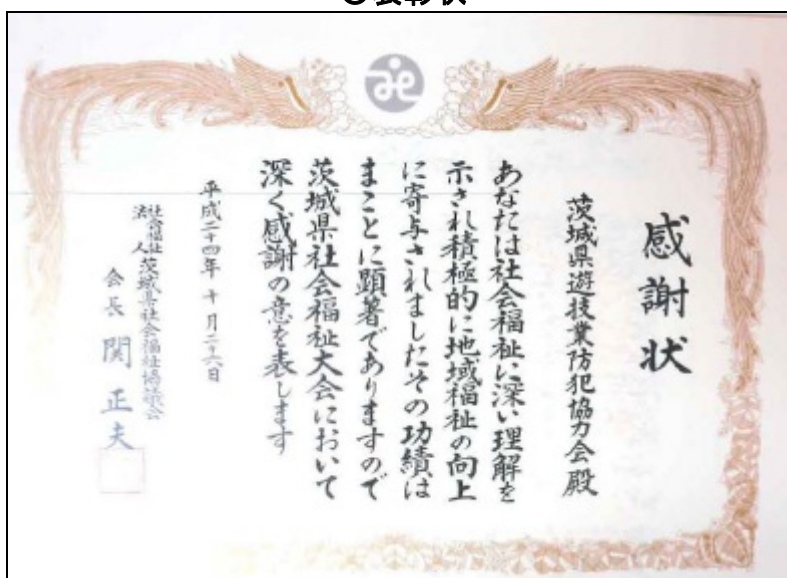 感謝状
茨城県遊技業防犯協力会殿
あなたは社会福祉に深い理解を
示され積極的に地域福祉の向上
に寄与されましたその功績は
まことに顕著でありますので
茨城県社会福祉大会において
深く感謝の意を表します
平成二十四年十月二十六日
社会福祉法人茨城県社会福祉協議会
会長関正夫